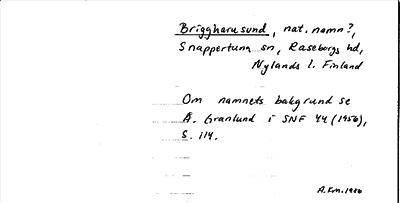 Briggharusund, nat. namn?,
Snappertuna sn, Raseborgs hd,
Nylands l. Finland
Om namnets bakgrund se
Å. Granlund i SNF 44 (1956),
S. 114.